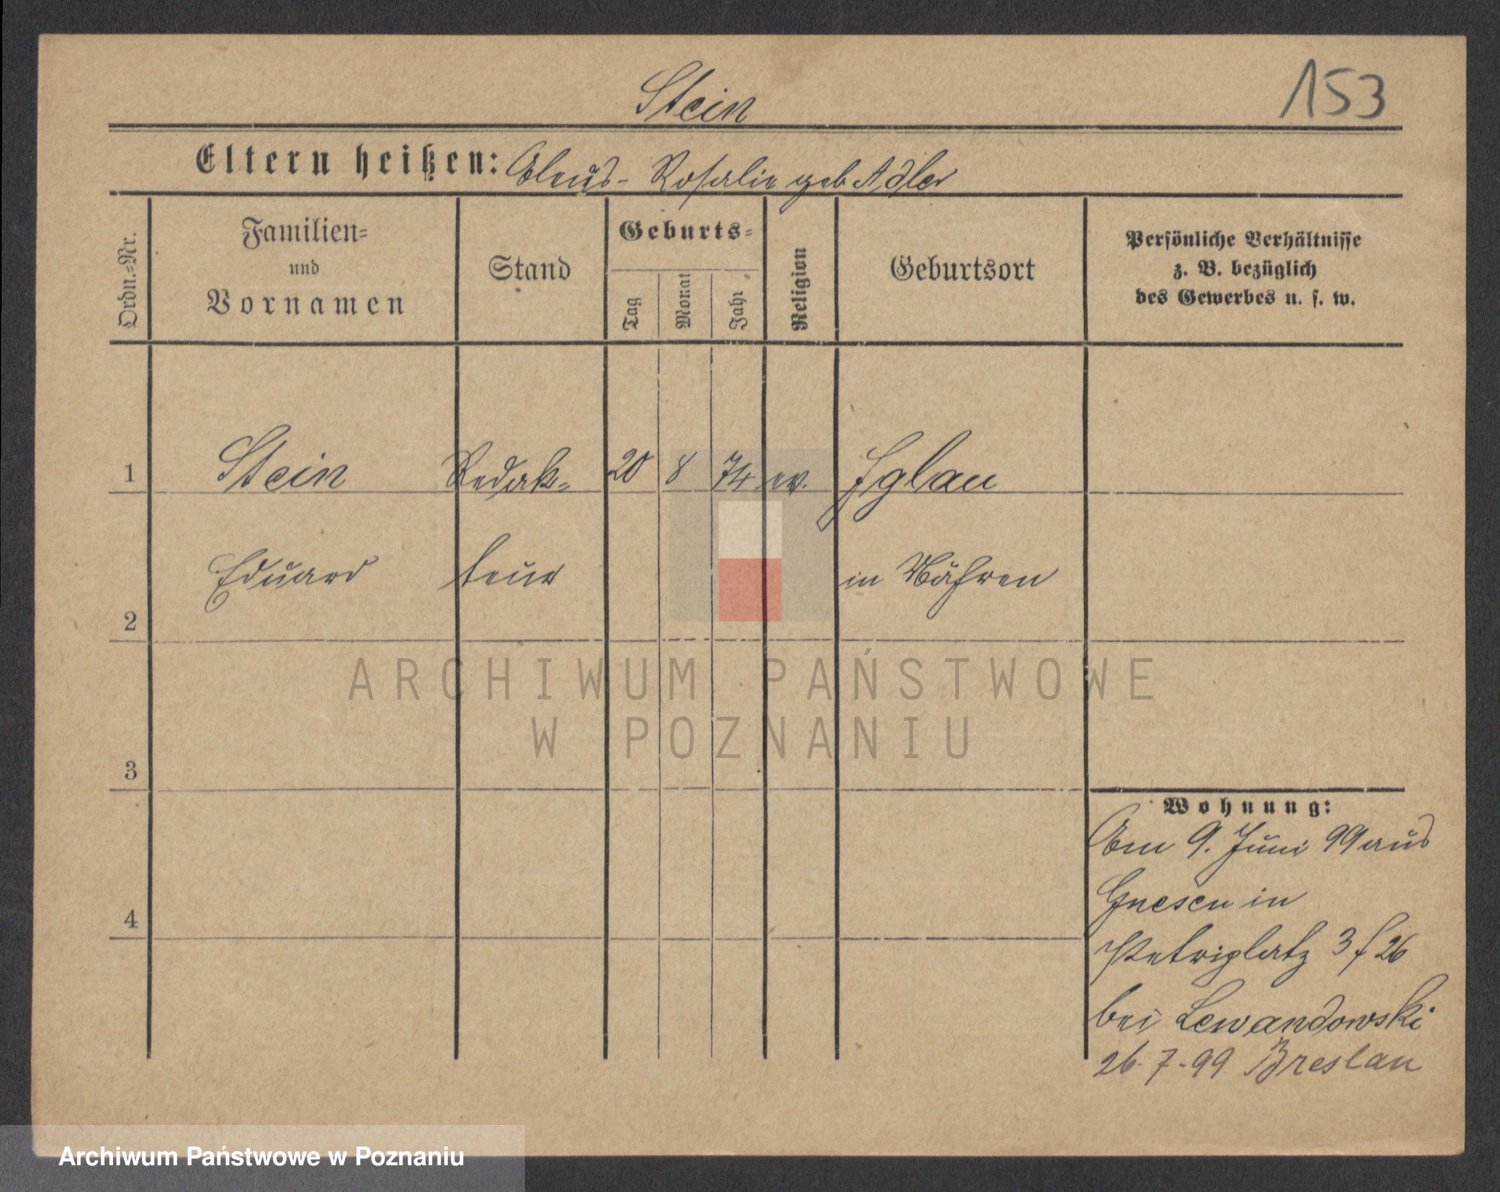 Stein
153
Eltern heißen: Rosalie geb Adler
Ordn.-Nr.
Familien-
und
Vornamen
Stand
Geburts-
Tag
Monat
Jahr
Religion
Geburtsort
Persönliche Verhältnisse
z. B. bezüglich
des Gewerbes u. s. w.
1 Stein Redak- 20 8 74 ev. Iglau
Eduard teur in Mähren
2
ARCHIWUM PAŃSTWOWE
W POZNANIU
3
Wohnung:
Am 9. Juni 99 aus
Gnesen in
4
Petriplatz 3 f 26
bei Lewandowski
26.7.99 Breslau
Archiwum Państwowe w Poznaniu